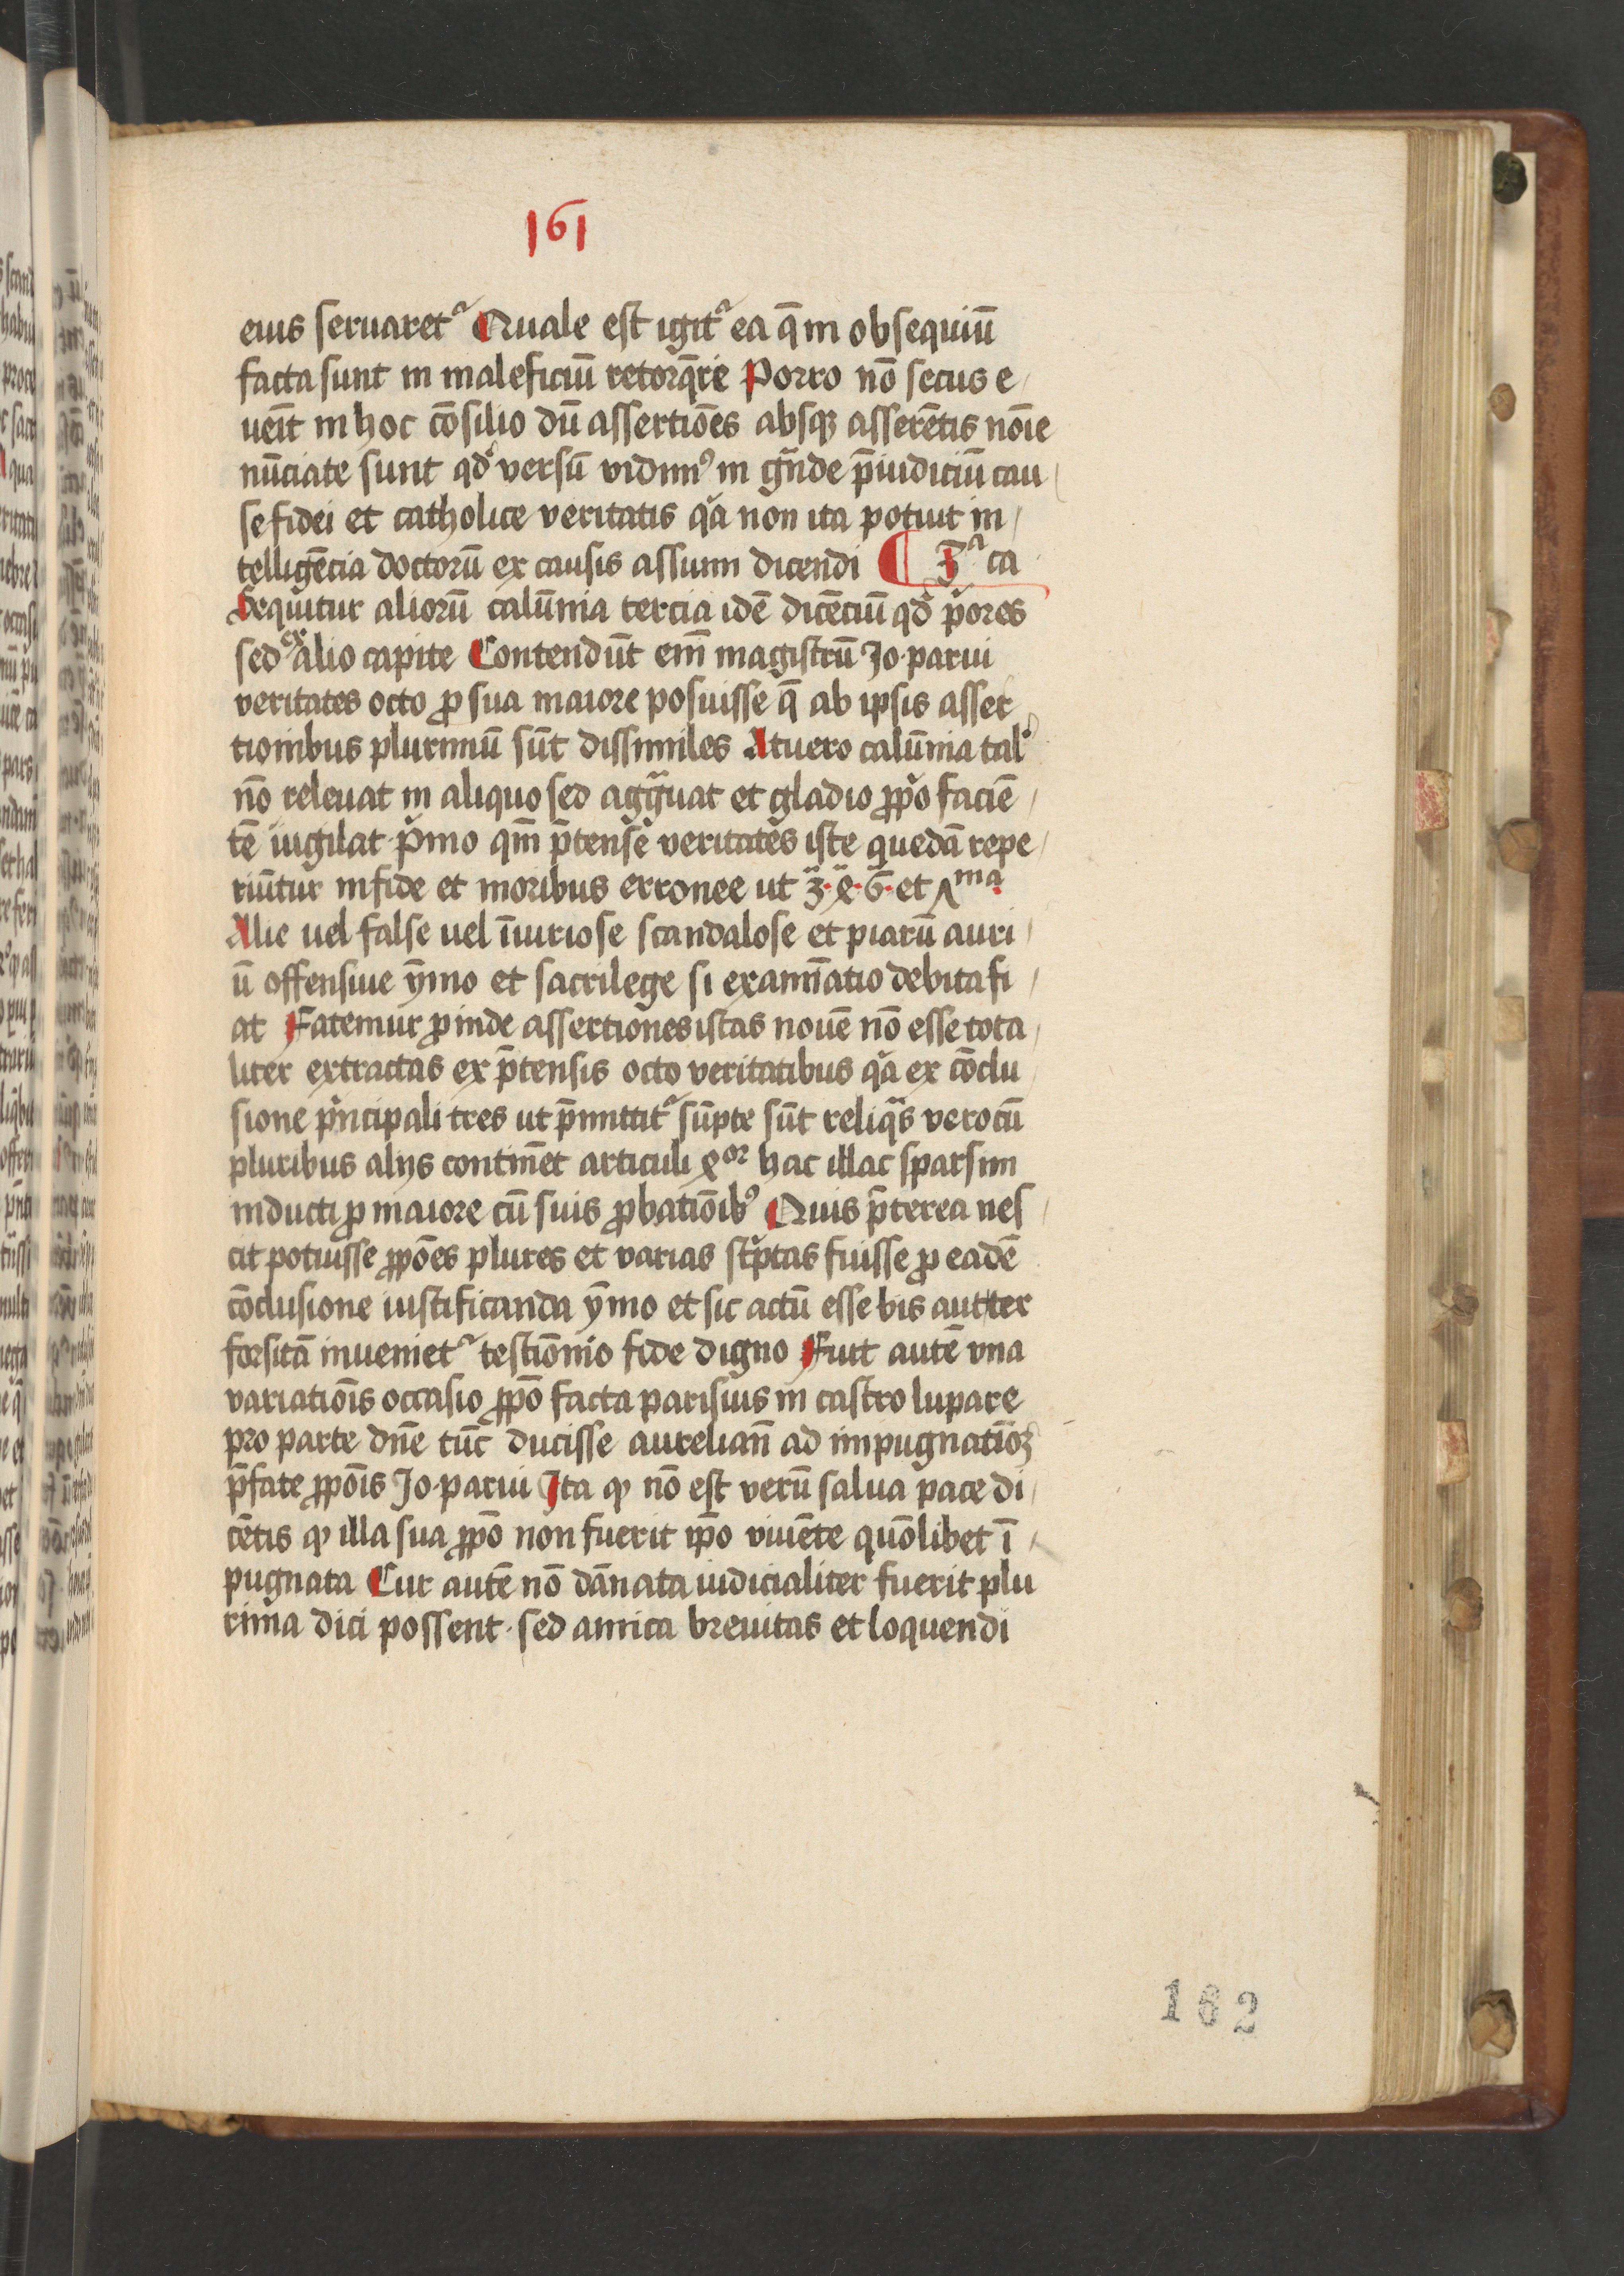 161
eius seruaretᷣ Quale est igitᷣ ea q̄ in obsequiū
facta sunt in maleficiū retorq̄re Porro nō secus e
uēit in hoc cōsilio dū assertiōes absqꝫ asserētis noīe
nūciate sunt qd̓ versū vidimꝰ in gͣnde p̄iudiciū cau
se fidei et catholice veritatis qͣ non ita potuit in
telligēcia doctorū ex causis assumi dicendi ¶ 3ª ca
Sequitur aliorū calūnia tercia idē dicēciū qd̓ p̓ores
sed ex alio capite Contendūt em̄ magistrū Jo· parui
veritates octo ꝓ sua maiore posuisse q̄ ab ipsis asser
tionibus plurimū sūt dissimiles Atuero calūnia tal̓
nō releuat in aliquo sed aggͣuat et gladio ꝓp̓o faciē
tē iugilat· p̓mo qm̄ p̄tense veritates iste quedā repe
riūtur in fide et moribus erronee ut 3· 4· 6· et 7ma
Alie uel false uel īiuriose scandalose et piarū auri
ū offensiue ymo et sacrilege si examīatio debita fi
at Fatemur ꝓinde assertiones istas nouē nō esse tota
liter extractas ex p̄tensis octo veritatibus qͣ ex cōclu
sione p̓ncipali tres ut p̄mittitᷣ sūpte sūt reliqͣs vero cū
pluribus alijs contīnet articuli 4or hac illac sparsim
inducti ꝓ maiore cū suis ꝓbatiōibꝰ Quis p̄terea nes
cit potuisse ꝓpōes plures et varias sc̓ptas fuisse ꝓ eadē
cōclusione iustificanda ymo et sic actū esse bis aut ter
forsitā inuenietᷣ testiōnio fide digno Fuit autē vna
variatiōis occasio ꝓpō facta parisius in castro lupare
pro parte dn̄e tūc ducisse aurelian̄ ad impugnatiōꝫ
p̄fate ꝓpōis Jo· parui Ita ꝙ nō est verū salua pace di
cētis ꝙ illa sua ꝓpō non fuerit ip̄o viuēte quōlibet ī
pugnata Cur autē nō dānata iudicialiter fuerit plu
rima dici possent· sed amica breuitas et loquendi
162